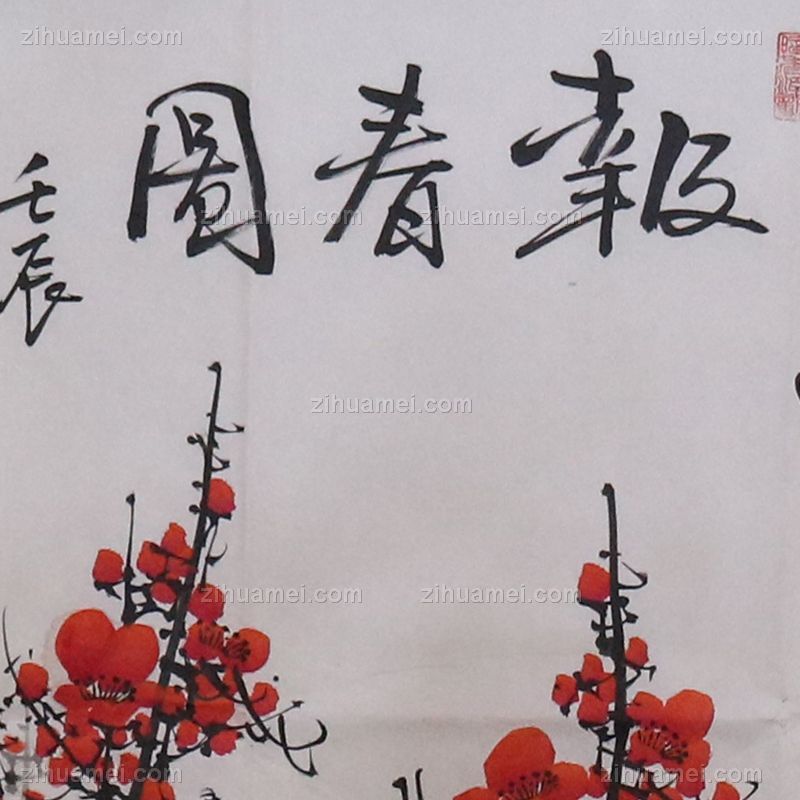 報春圖
壬辰
zihuamei.com zihuamei.com zihuamei.com
zihuamei.com zihuamei.com
zihuamei.com
zihuamei.com zihuamei.com
zihuamei.com zihuamei.com zihuamei.com